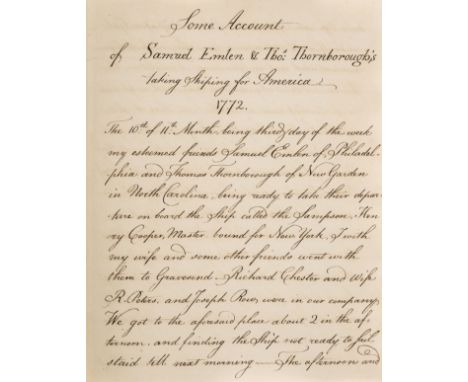 Some Account
of Samuel Emlen & Tho.s Thornborough's
taking Shiping for America
1772.
The 10th of 11th Month, being third day of the week
my esteemed friends Samuel Emlen of Philadel-
phia and Thomas Thornborough of New Garden
in North Carolina, being ready to take their depar-
ture on board the Ship called the Sampson, Hen-
ry Cooper, Master, bound for New York, I with
my wife and some other friends went with
them to Gravesend - Richard Chester and Wife
R. Peters, and Joseph Row, were in our company
We got to the aforesaid place about 2 in the af-
ternoon, and finding the Ship not ready to sail
staid till next morning — The afternoon and